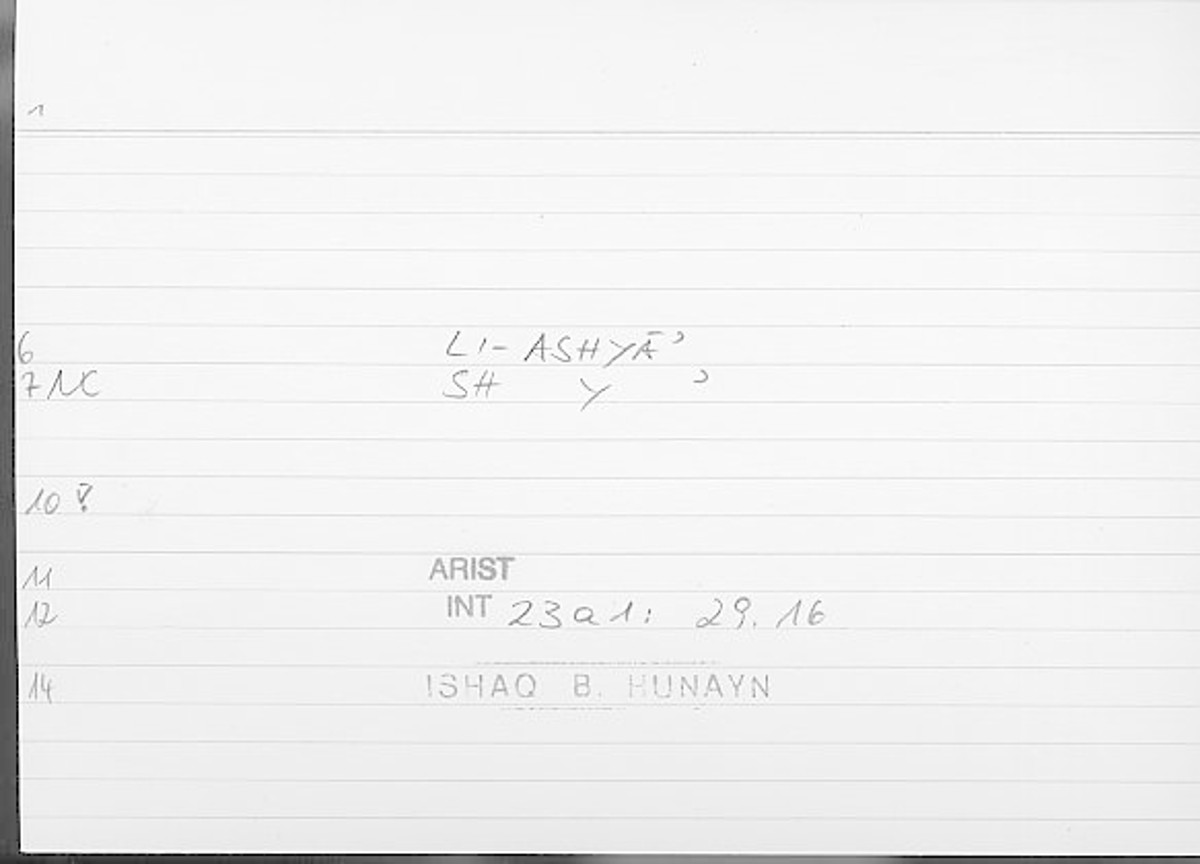 1
6 LI- ASHYĀʾ
7 NC SH Y ʾ
10
11 ARIST
12 INT 23a1: 29.16
14 ISHAQ B. HUNAYN